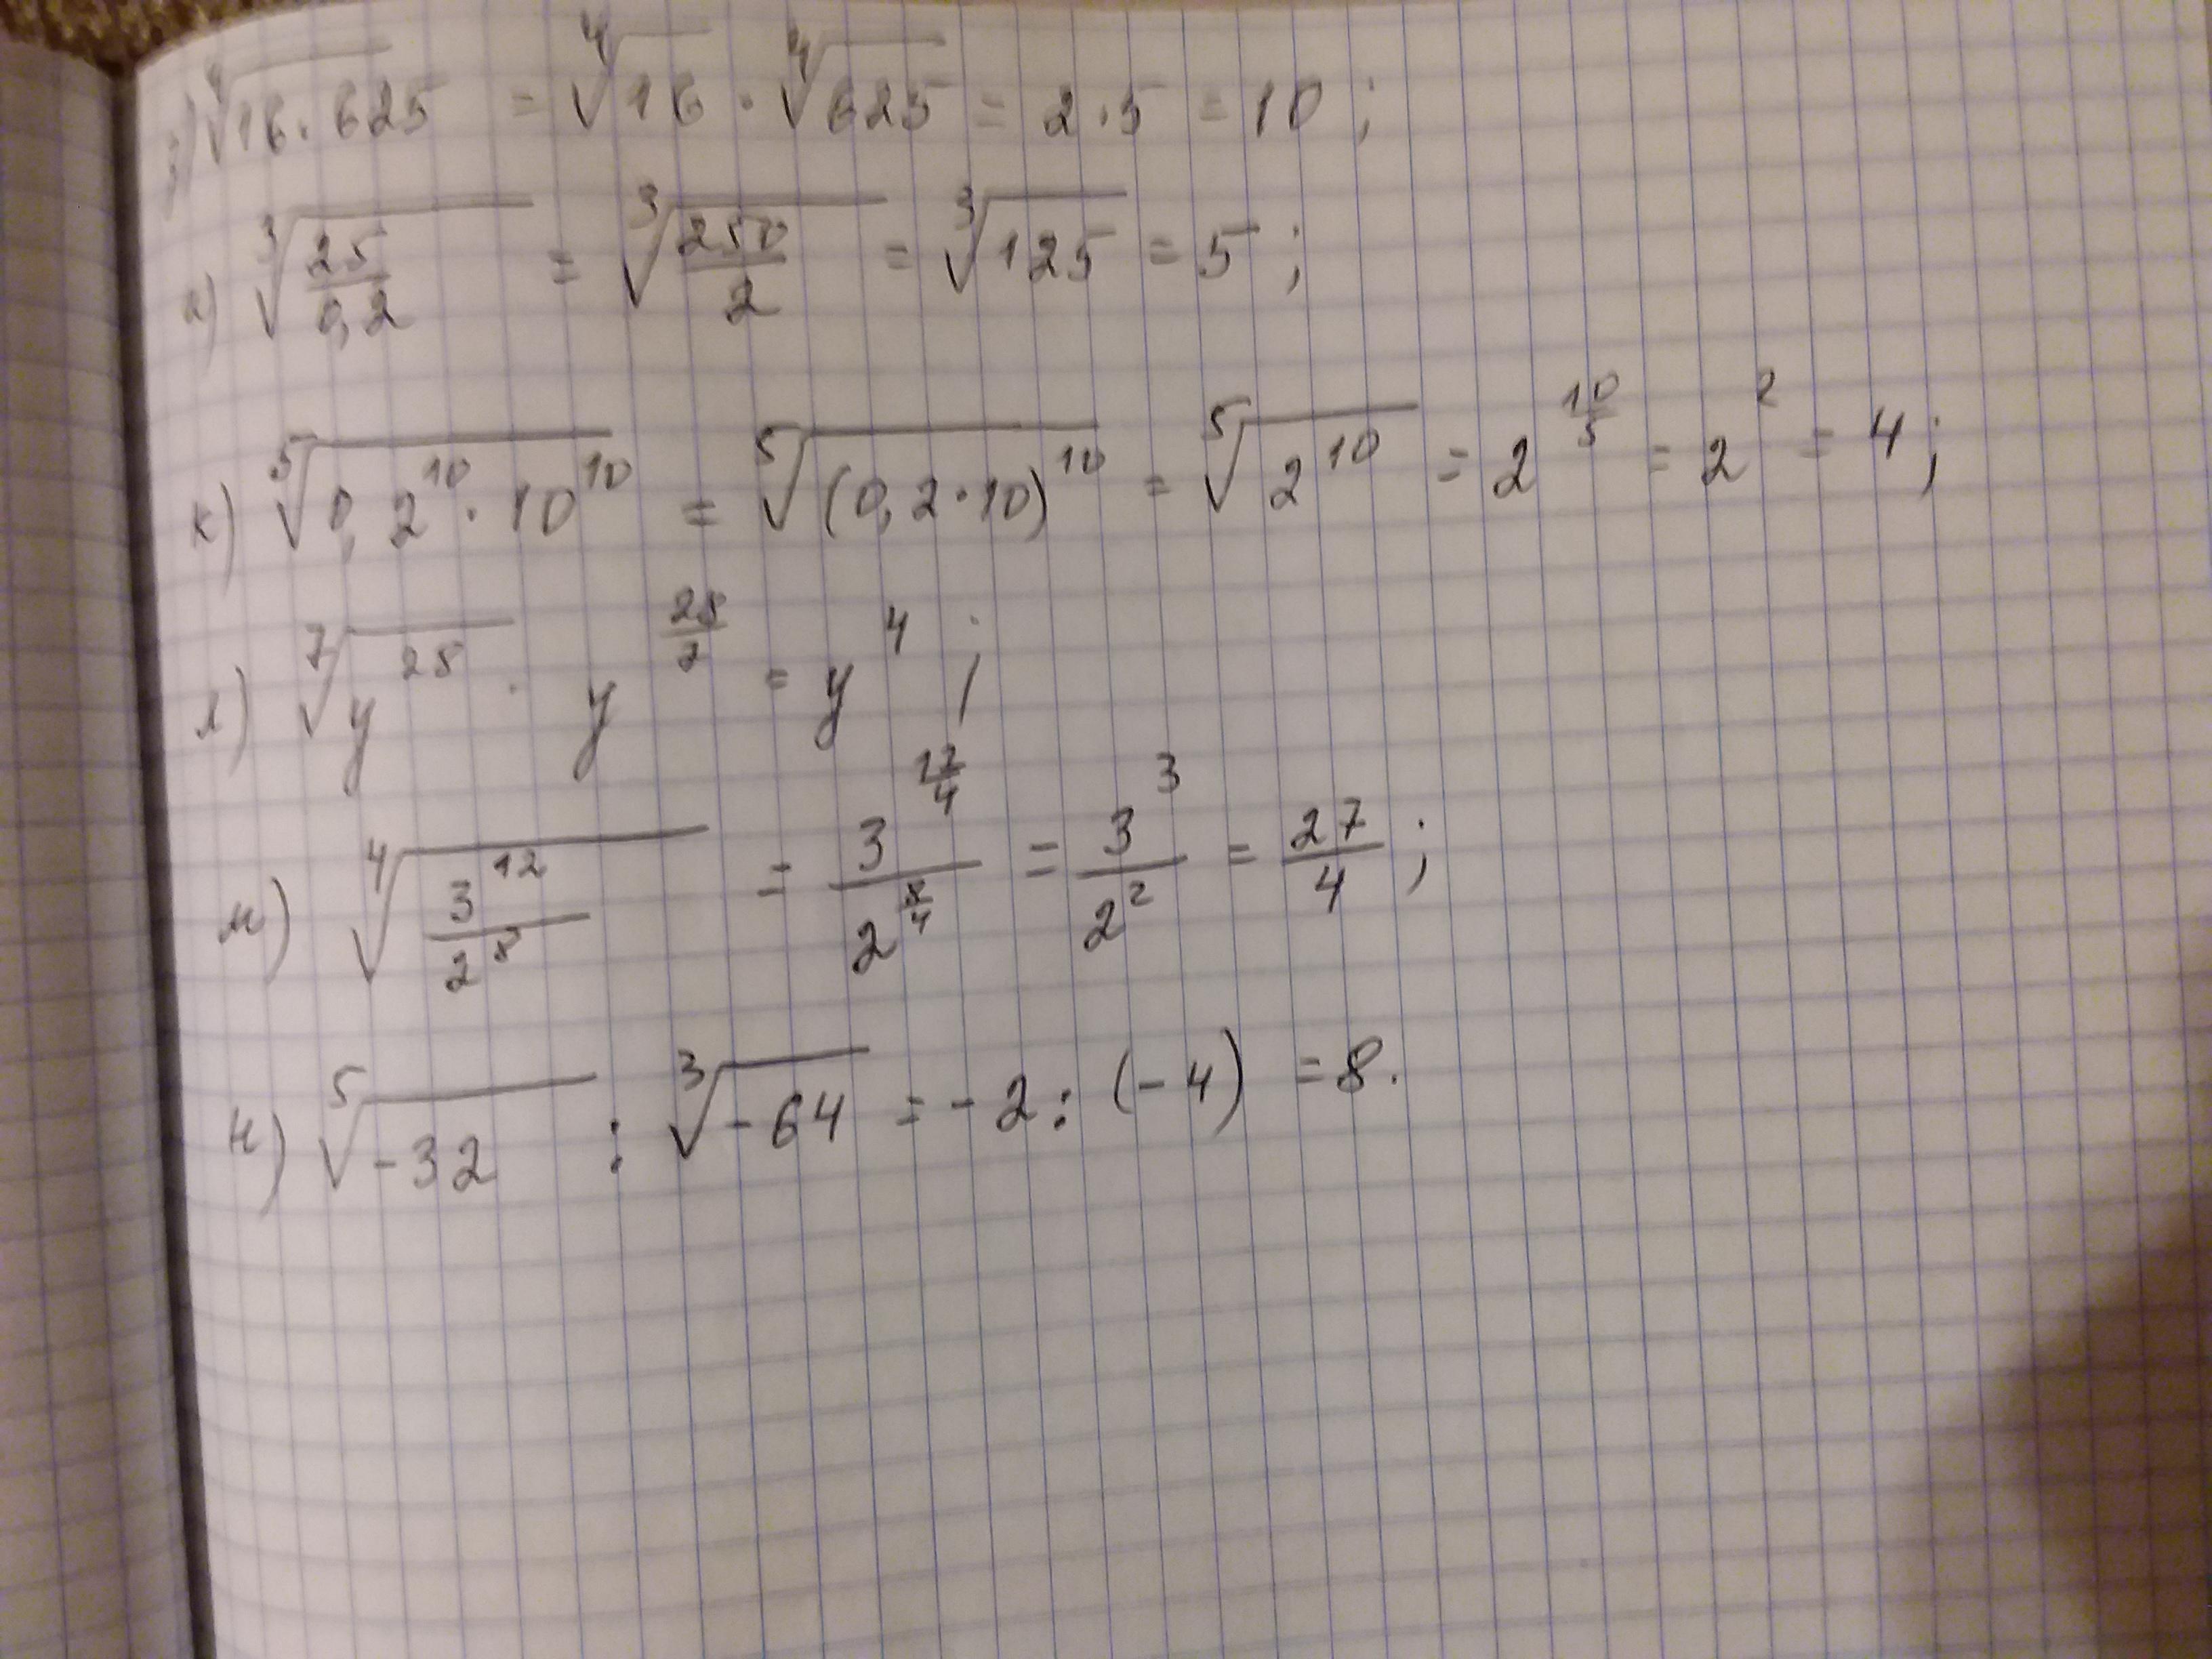 з) ⁴√16·625 = ⁴√16 · ⁴√625 = 2·5 = 10;
и) ³√(25/0,2) = ³√(250/2) = ³√125 = 5;
к) ⁵√0,2¹⁰·10¹⁰ = ⁵√(0,2·10)¹⁰ = ⁵√2¹⁰ = 2^(10/5) = 2² = 4;
л) ⁷√y²⁸ · y^(28/7) = y⁴;
м) ⁴√(3¹²/2⁸) = 3^(12/4)/2^(8/4) = 3³/2² = 27/4;
н) ⁵√-32 : ³√-64 = -2 : (-4) = 8.